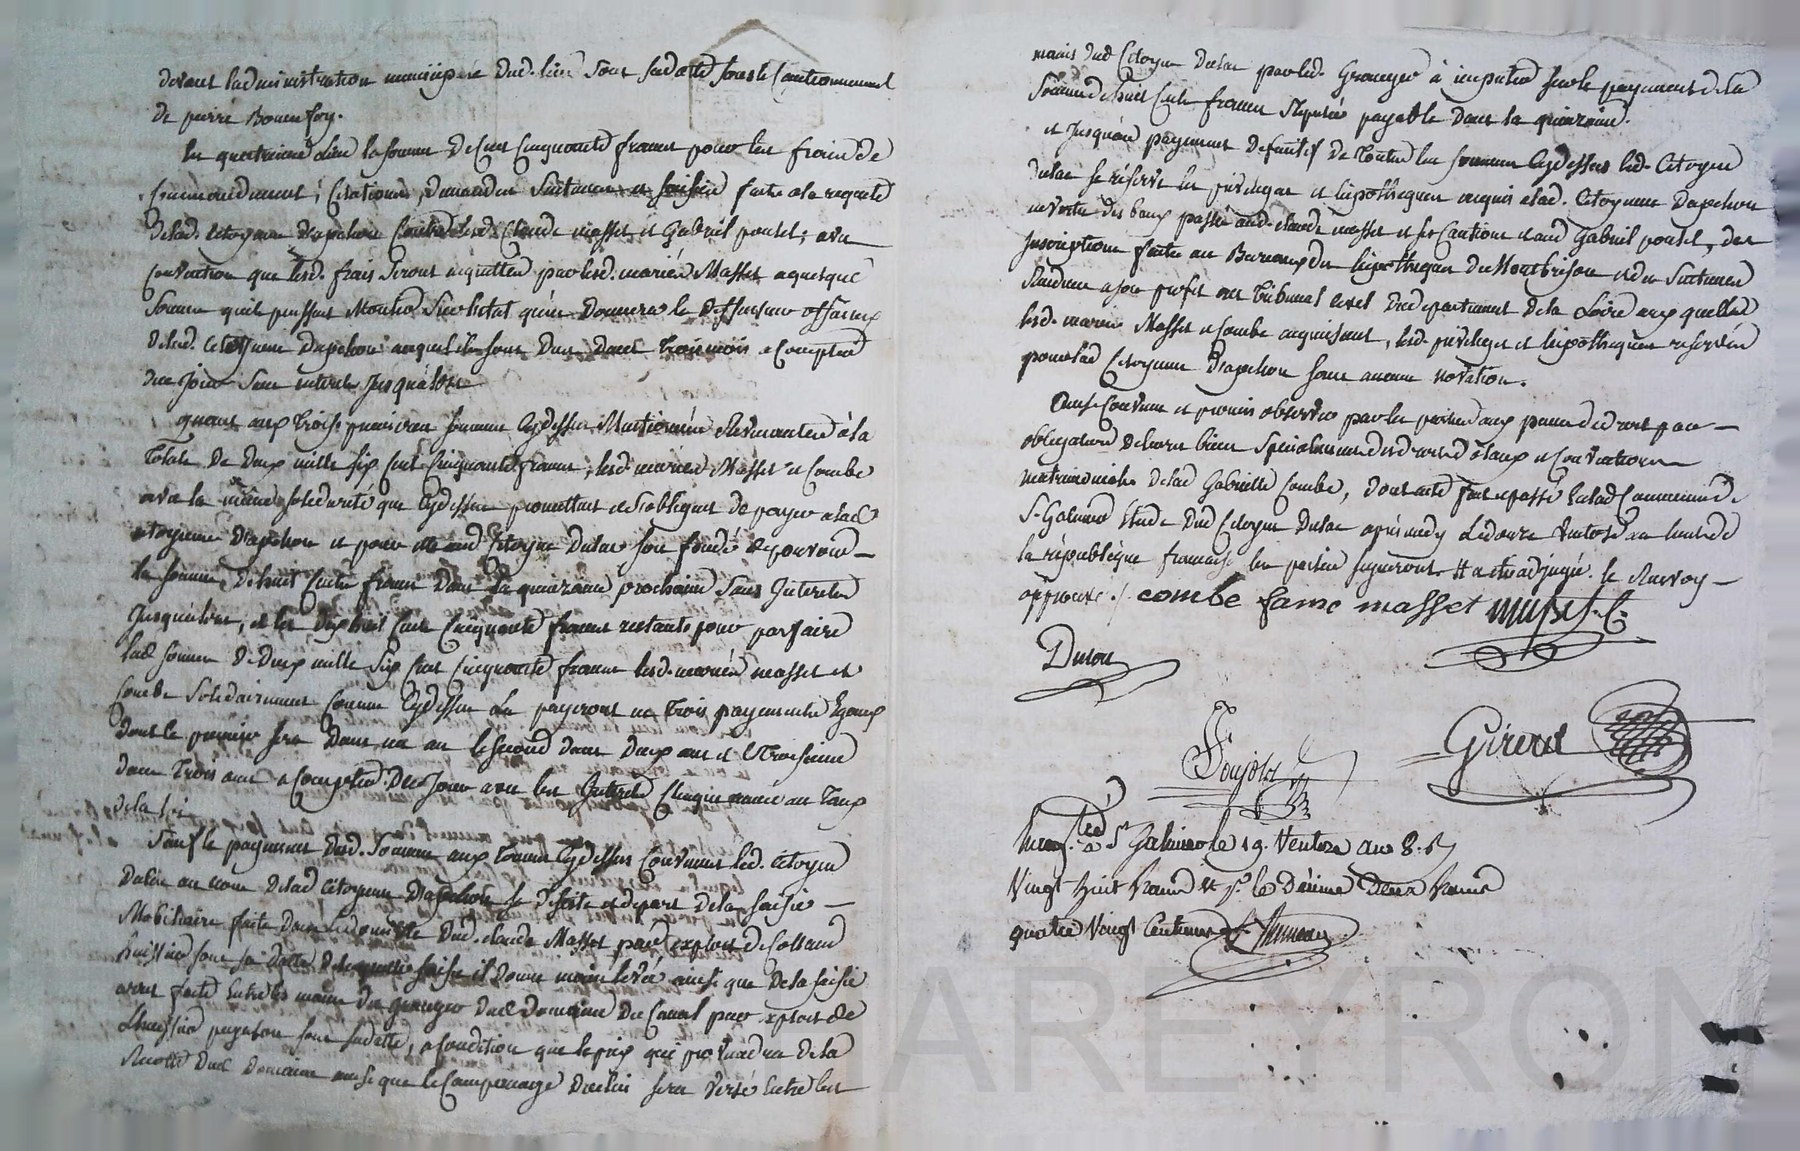 devant l'administration municipale dud. lieu sous sa datte sous le Cautionnement
de pierre Bonnefoy.
En quatrieme lieu la somme de Cent Cinquante francs pour les frais de
Commandement, Citations, demandes Sentences et saisies faits a la requete
de lad. citoyenne Dapchon Contre lesd. Claude masset et Gabriel poulet; avec
Convention que lesd. frais seront acquittés par lesd. mariés Masset a quesque
Somme quils puissent Monter sur letat qu'en Donnera le deffenseur officieux
de lad. Citoyenne Dapchon auquel ils sont Dus dans trois mois a Compter
de ce jour sans interets jusqu'alors
quant aux trois premieres sommes Cydessus Mentionnées Revenantes à la
totale de Deux mille six cent Cinquante francs, lesd. mariés Masset et Combe
avec la même solidarité que Cydessus promettent et s'obligent de payer a lad.
citoyenne Dapchon et pour elle aud Citoyen Dulac son fondé de pouvoir
la somme de huit Cents francs Dans la quinzaine prochaine sans Interets
Jusqu'alors, et les dix huit Cent Cinquante francs restants pour parfaire
lad somme de deux mille six Cent Cinquante francs lesd. mariés masset et
Combe solidairement Comme Cydessus les payeront en trois payements Egaux
dont le premier sera Dans un an le second dans deux ans et le troisieme
dans trois ans a Compter de ce Jour avec les Interets Chaque année au taux
de la loi
Sauf le payement desd. Sommes aux termes Cydessus Convenus led. Citoyen
Dulac au nom de lad Citoyenne Dapchon se desiste et depart de la saisie
Mobiliaire faite Dans le domicile dud. claude Masset par exploit de Collaud
huissier sous sa datte de laquelle saisie il donne main levée ainsi que de la saisie
arret faite Entre les mains du granger dud domaine du Canal par exploit de
Lhuissier sous sadatte, a Condition que le prix qui proviendra de la
Recolte dud domaine ainsi que le sera versé Entre les
mains dud Citoyen Dulac par led. Granger à imputer sur le payement de la
Somme de huit Cents francs stipulée payable dans la quinzaine.
et Jusqu'au payement deffinitif de toutes les sommes Cydessus led. Citoyen
Dulac se réserve les privileges et hipotheques acquis a lad. Citoyenne Dapchon
en vertu des baux passés aud. claude masset et ses Cautions et aud Gabriel poulet, des
Inscriptions faites au Bureau des hipotheques de Montbrison et des Sentences
Rendues a son profit au tribunal civil du departement de la Loire auxquelles
lesd. mariés Masset et Combe acquiescent, lesd. privileges et hipotheques réservés
pour lad Citoyenne Dapchon sans aucune novation.
Ainsi Convenu et promis observer par les parties aux peines de droit par
obligation de leurs biens specialement desd mariés
matrimoniales de lad Gabrielle Combe, dont acte fait et passé En lad Commune de
St Galmier Etude dud Citoyen Dulac après midy Le douze Ventose an huit de
la république française les parties signeront. Et a été adjugé. le Renvoy
approuvé ./. combe fame masset masset. C.
Dulac
Poujolat
Girerd
Enreg.tré a St Galmier le 19. Ventose an 8. Rx
Vingt huit francs et pr. le Décime Deux francs
quatre Vingt Centimes
MAREYRON